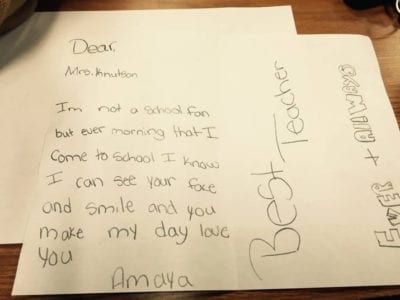 Dear,
Mrs. Knutson
I'm not a school fan
but ever morning that I
come to school I know
I can see your face
and smile and you
make my day love
you
Amaya
Best Teacher
EVER + ALWAYS